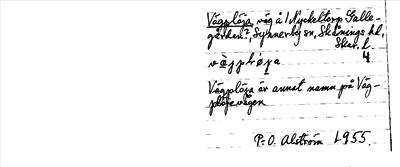 Vägplöja väg å 1 Nyckeltorp Galle-
gården?, Synnerby sn, Skånings hd,
Skar. l.
4
Vägplöja är annat namn på Väg-
plöjevägen
P. O. Alström 1955.